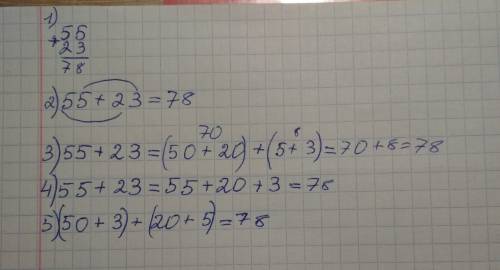 1)
+55
23
78
2) 55 + 23 = 78
70 8
3) 55 + 23 = (50 + 20) + (5 + 3) = 70 + 8 = 78
4) 55 + 23 = 55 + 20 + 3 = 78
5) (50 + 3) + (20 + 5) = 78